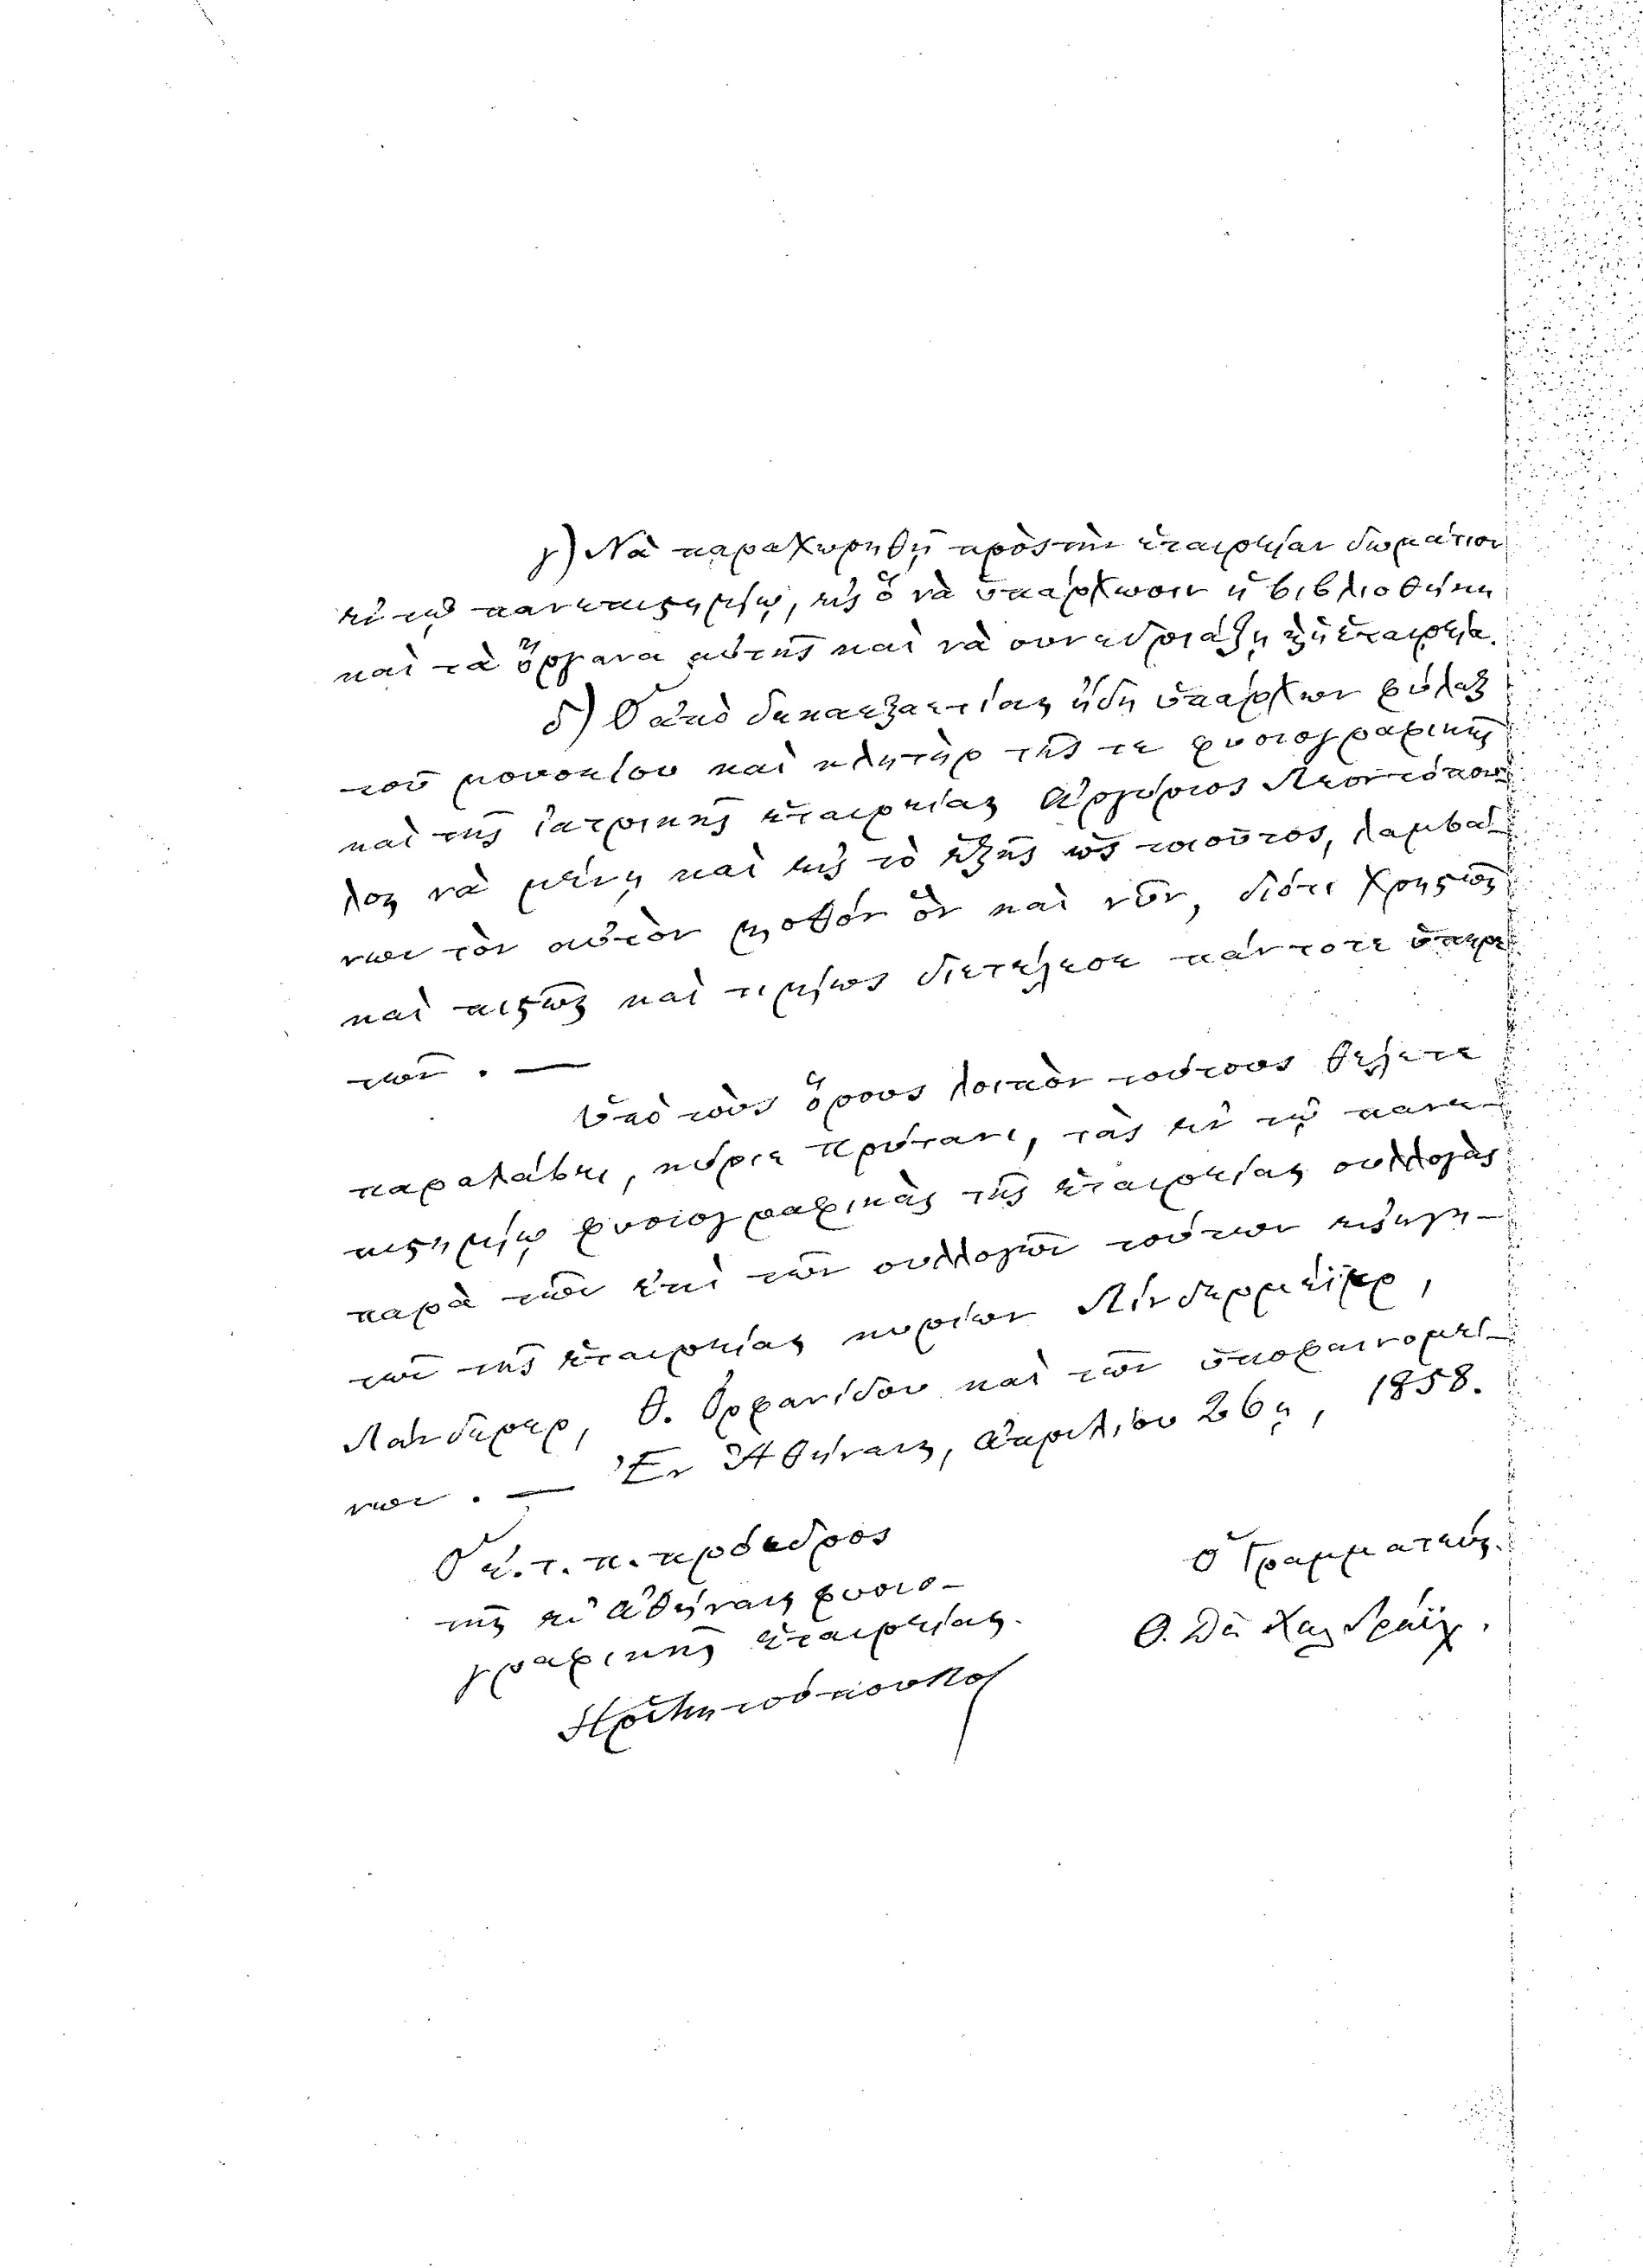 γ) Νὰ παραχωρηθῇ πρὸς τὴν ἑταιρείαν δωμάτιον
ἐν τῷ πανεπιστημείῳ, εἰς ὃ νὰ ὑπάρχωσιν ἡ βιβλιοθήκη
καὶ τὰ ὄργανα αὐτῆς καὶ νὰ συνεδριάζῃ ἡ ἑταιρεία.
δ) Ὁ ἀπὸ δεκαεξαετίας ἤδη ὑπάρχων φύλαξ
τοῦ μουσείου καὶ κλητὴρ τῆς τε φυσιογραφικῆς
καὶ τῆς ἰατρικῆς ἑταιρείας Ἀργύριος Λεοντόπου
λος νὰ μείνῃ καὶ εἰς τὸ ἑξῆς ὡς τοιοῦτος, λαμβά-
νων τὸν αὐτὸν μισθὸν ὃν καὶ νῦν, διότι χρηστῶς
καὶ πιστῶς καὶ τιμίως διετέλεσε πάντοτε ὑπηρε
τῶν. —
Ὑπὸ τοὺς ὅρους λοιπὸν τούτους θέλετε
παραλάβει, κύριε πρύτανι, τὰς ἐν τῷ πανε-
πιστημείῳ φυσιογραφικὰς τῆς ἑταιρείας συλλογὰς
παρὰ τῶν ἐπὶ τῶν συλλογῶν τούτων εἰσηγη-
τῶν τῆς ἑταιρείας κυρίων Λίνδερμάϊερ,
Λάνδερερ, Θ. Ὀρφανίδου καὶ τῶν ὑποφαινομέ-
νων. — Ἐν Ἀθήναις, Ἀπριλίου 26ῃ, 1858.
Ὁ ἐ. τ. π. πρόεδρος
τῆς ἐν Ἀθήναις φυσιο-
γραφικῆς ἑταιρείας.
Ὁ Γραμματεύς.
Θ. Δὲ Χελδράϊχ.